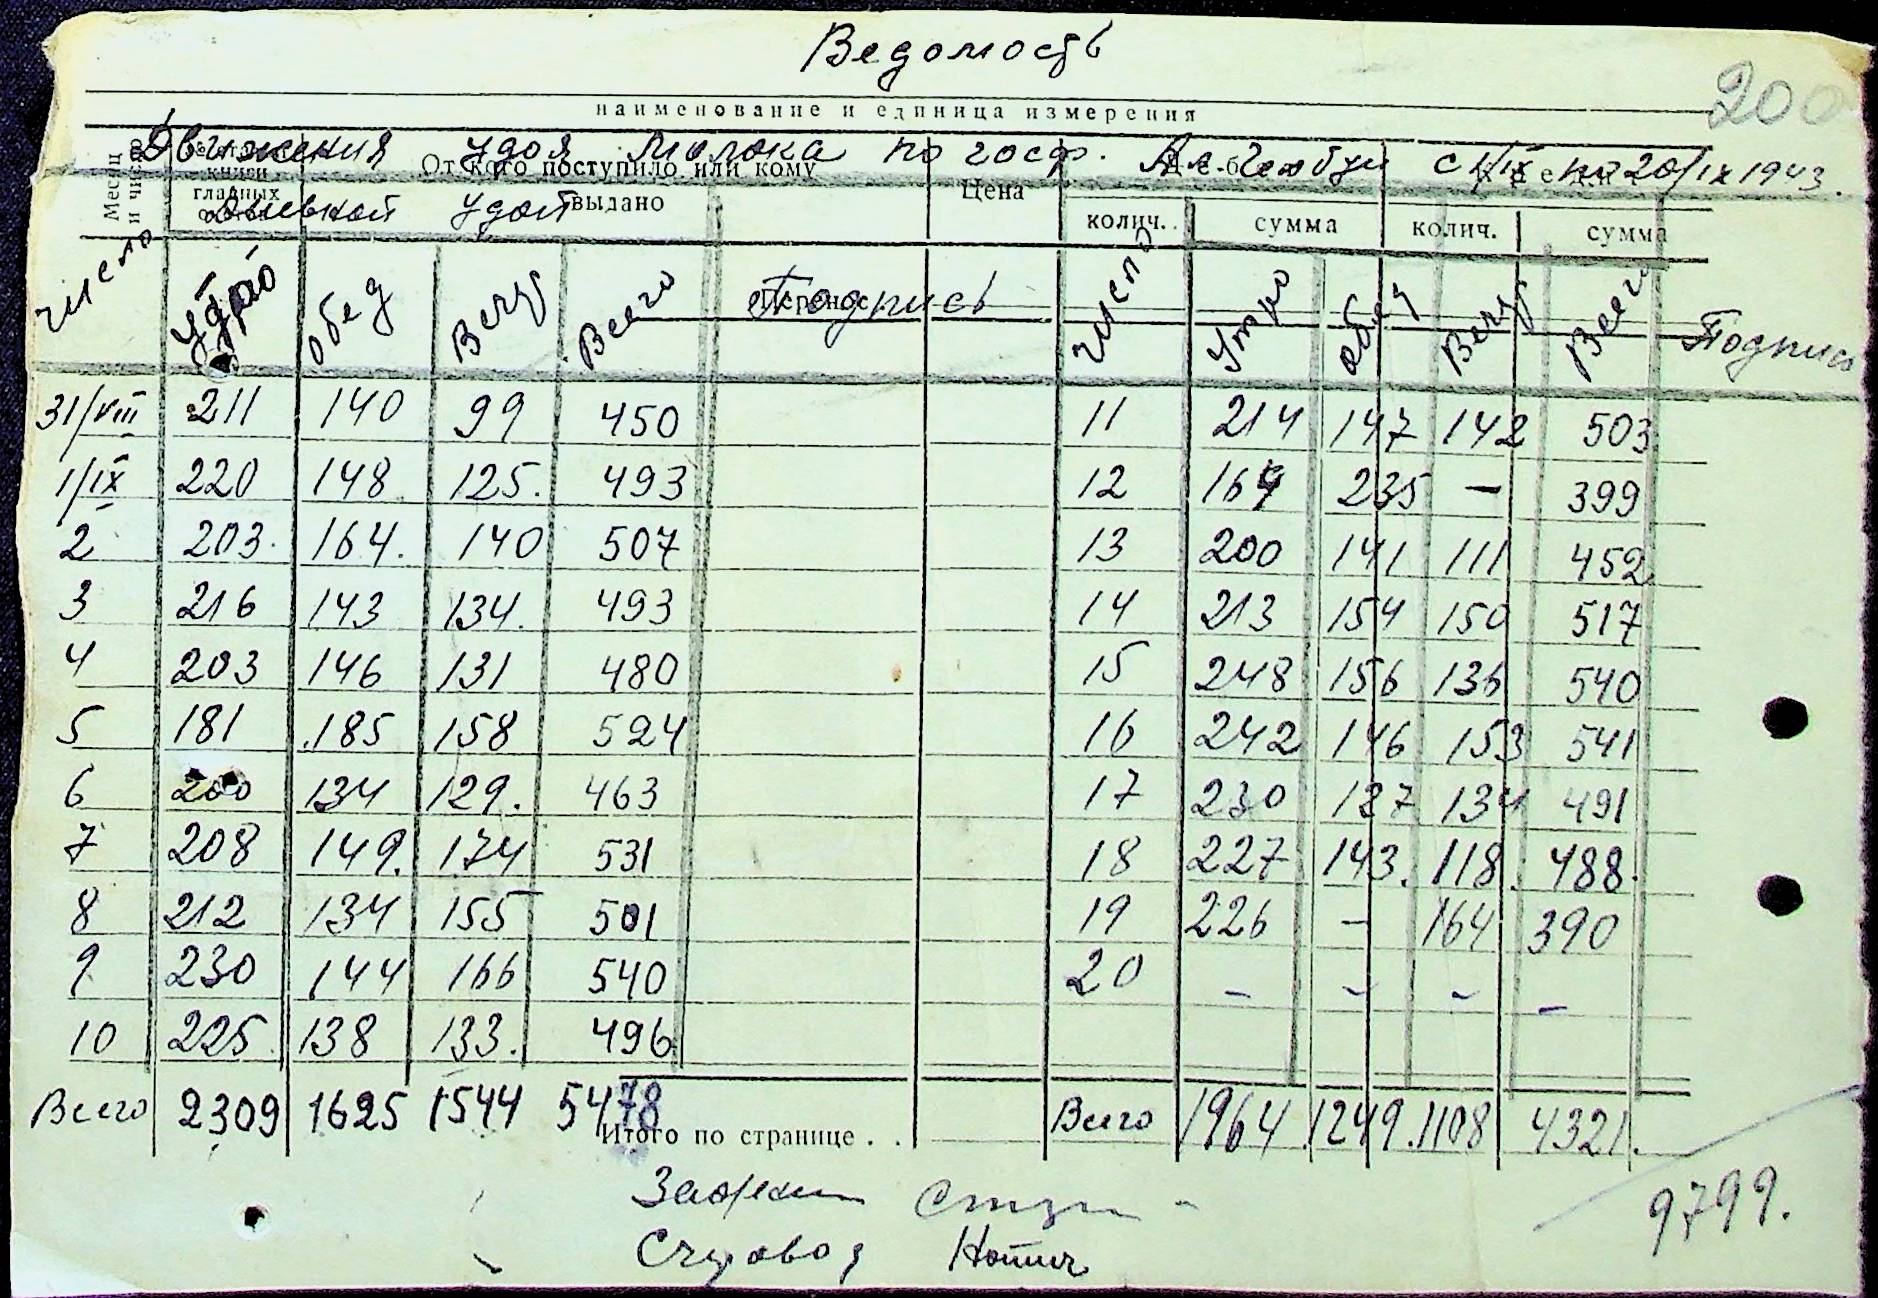 Ведомость
200
наименование и единица измерения
Движения удоя молока по госф. с 1/IX по 20/IX 1943.
Месяц и число
книги
главных
От кого поступило или кому
выдано
Цена
удой
колич. сумма колич. сумма
число Утро обед Вечер Всего Подпись число Утро обед Вечер Всего Подпись
31/VIII 211 140 99 450 11 214 147 142 503
1/IX 220 148 125. 493 12 164 235 — 399
2 203. 164. 140 507 13 200 141 111 452
3 216 143 134. 493 14 213 154 150 517
4 203 146 131 480 15 248 156 136 540
5 181 185 158 524 16 242 146 153 541
6 200 134 129. 463 17 230 127 134 491
7 208 149. 174 531 18 227 143. 118. 488.
8 212 134 155 501 19 226 – 164 390
9 230 144 166 540 20 – – – –
10 225. 138 133. 496
Всего 2309 1625 1544 5478 Всего 1964 1249. 1108 4321.
Итого по странице . .
9799.